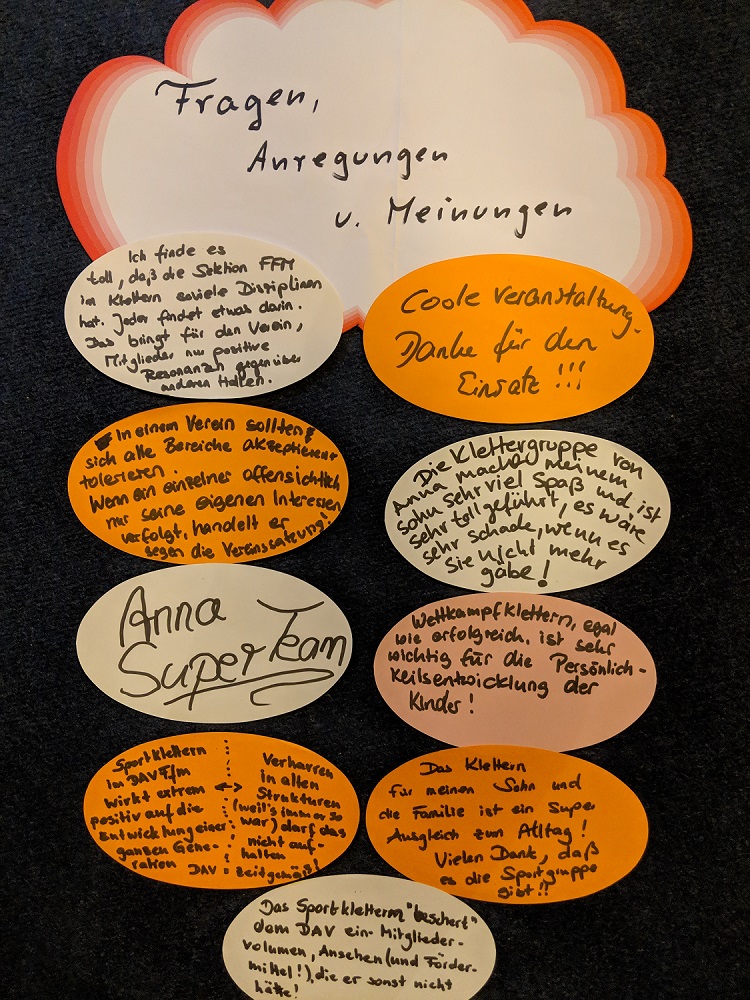 Fragen,
Anregungen
u. Meinungen
Ich finde es
toll, daß die Sektion FFM
im Klettern soviele Disziplinen
hat. Jeder findet etwas darin.
Das bringt für den Verein,
Mitglieder nur positive
Resonanzen gegenüber
anderen Hallen.
Coole Veranstaltung.
Danke für den
Einsatz !!!
In einem Verein sollten
sich alle Bereiche akzeptieren
tolerieren.
Wenn ein einzelner offensichtlich
nur seine eigenen Interessen
verfolgt, handelt er
gegen die Vereinssatzung!
Die Klettergruppe von
Anna macht meinem
Sohn sehr viel Spaß und ist
sehr toll geführt, es wäre
sehr schade, wenn es
sie nicht mehr
gäbe!
Anna
Super Team
Wettkampfklettern, egal
wie erfolgreich, ist sehr
wichtig für die Persönlich-
keitsentwicklung der
Kinder!
Sportklettern
im DAV Ffm
wirkt extrem
positiv auf die
Entwicklung einer
ganzen Gene-
ration
<->
Verharren
in alten
Strukturen
(weil's immer so
war) darf das
nicht auf-
halten
DAV = zeitgemäß!
Das Klettern
für meinen Sohn und
die Familie ist ein Super
Ausgleich zum Alltag!
Vielen Dank, daß
es die Sportgruppe
gibt!!
Das Sportklettern "beschert"
dem DAV ein Mitglieder-
volumen, Ansehen (und Förder-
mittel!), die er sonst nicht
hätte!